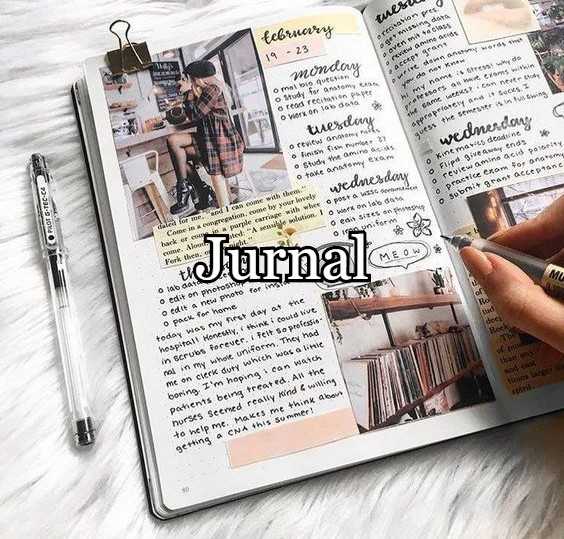 february
19 - 23
monday
o mol bio question
o study for anatomy exam
o read recitation paper
o work on lab data
tuesday
o review anatomy notes
o finish fish number
o study the amino acids
o take anatomy exam
wednesday
o work on lab data
o edit sizes on photoshop
dated for me," and I can come with them."
Come in a congregation, come by your lovely
back or come in a purple carriage with
"A sensible solution. I
Jurnal
o lab data
o edit on photoshop
o edit a new photo for
o pack for home
today was my first day at the
hospital! Honestly, i think i could live
in scrubs forever. I felt so professio-
nal in my whole uniform. They had
me on clerk duty which was a little
boring, I'm hoping i can watch
patients being treated. All the
nurses seemed really kind & willing
to help me. Makes me think about
getting a CNA this summer!
80
MEOW
tuesday
o recitation pres
o get missing data
o even mit to class
o review amino acids
o accept grant
o write down anatomy words that
i do not know
my name is stress! why do
professors all have exams within
the same week? i can never study
appropriately and it sucks. I
guess the semester is in full swing
wednesday
o kinematics deadline
o flipd giveaway ends
o review amino acid priority
o practice exam for anatomy
o submit grant acceptance
PILOT G-TEC-C4
MU